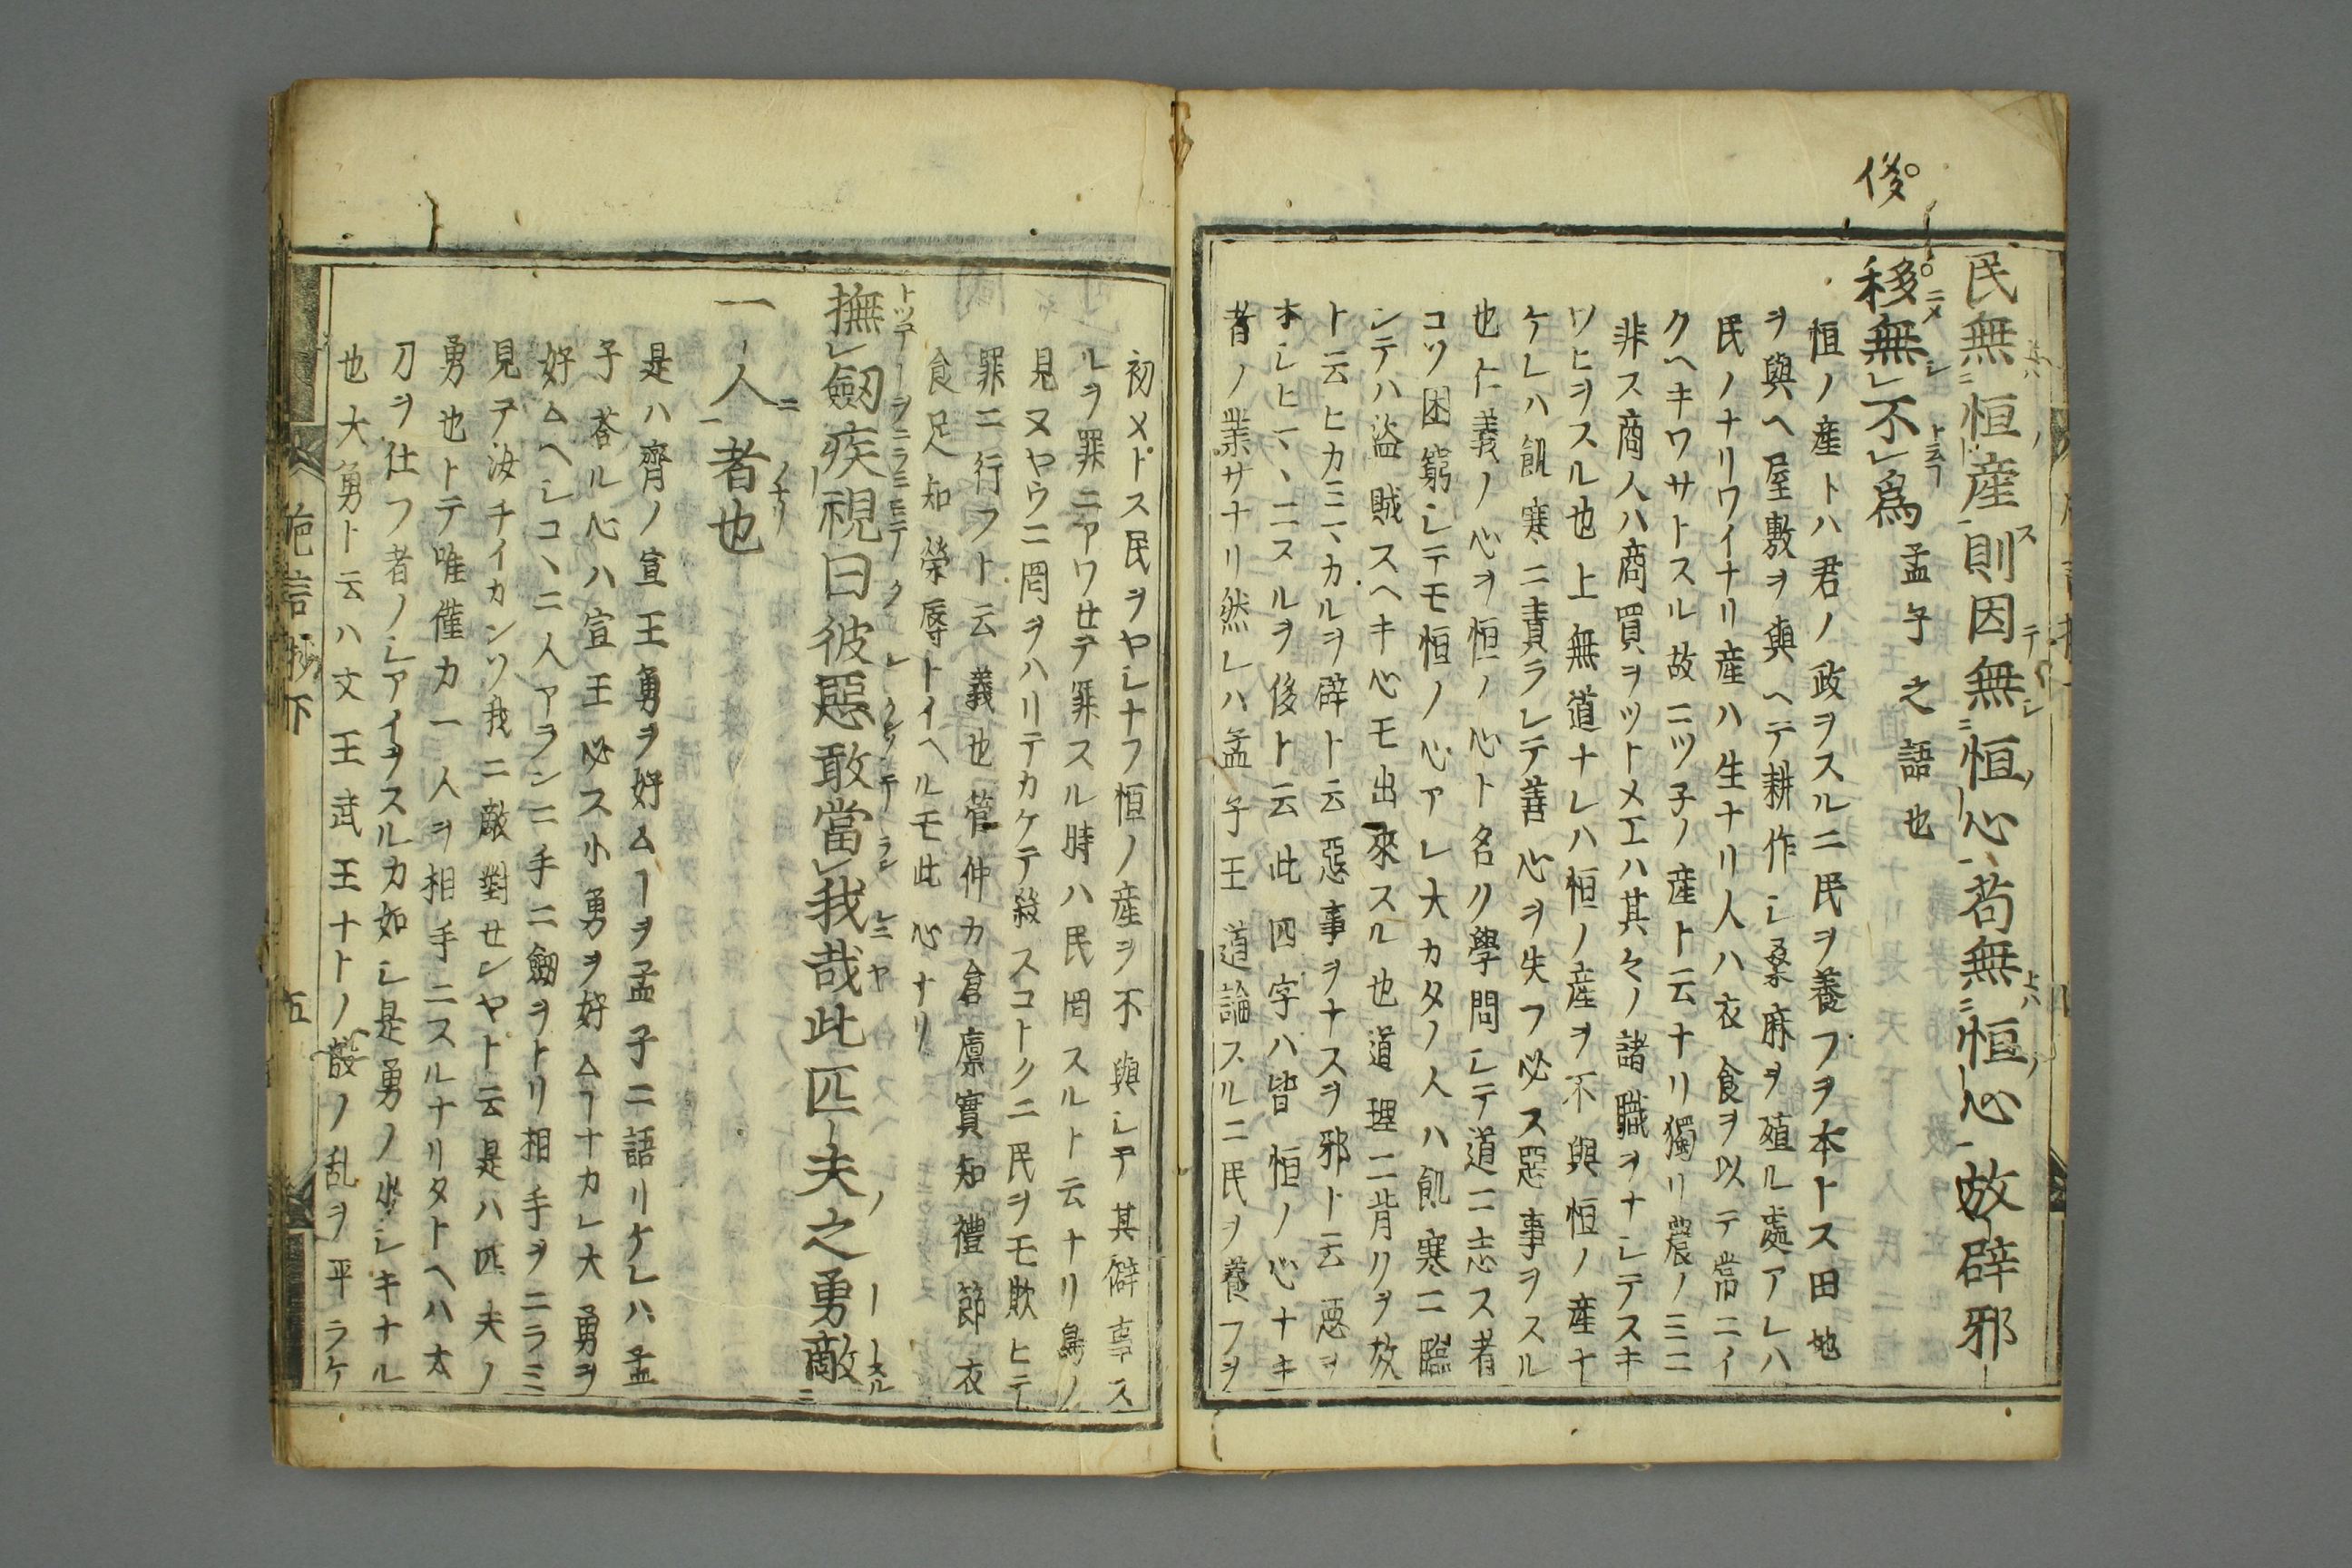 民無恒産則因無恒心苟無恒心故辟邪
侈
移無不爲 孟子之語也
恒ノ産トハ君ノ政ヲスルニ民ヲ養フヲ本トス田地
ヲ與ヘ屋敷ヲ與ヘテ耕作シ桑麻ヲ殖ル處アレハ
民ノナリワイナリ産ハ生ナリ人ハ衣食ヲ以テ常ニイ
クヘキワサトスル故ニツ子ノ産ト云ナリ獨リ農ノミニ
非ス商人ハ商買ヲツトメ工ハ其々ノ諸職ヲナシテスキ
ワヒヲスル也上無道ナレハ恒ノ産ヲ不與恒ノ産ナ
ケレハ飢寒ニ責ラレテ善心ヲ失フ必ス惡事ヲスル
也仁義ノ心ヲ恒ノ心ト名ク學問シテ道ニ志ス者
コソ困窮シテモ恒ノ心アレ大カタノ人ハ飢寒ニ臨
ンテハ盗賊スヘキ心モ出來スル也道理ニ背リヲ放
ト云ヒカミヽカルヲ辟ト云惡事ヲナスヲ邪ト云惡ヲ
本シヒヽヽニスルヲ侈ト云此四字ハ皆恒ノ心ナキ
者ノ業サナリ然レハ孟子王道論スルニ民ヲ養フヲ
初メトス民ヲヤシナフ恒ノ産ヲ不與シテ其辟事ス
ルヲ罪ニアワセテ罪スル時ハ民罔スルト云ナリ鳥ノ
見ヌヤウニ罔ヲハリテカケテ殺スコトクニ民ヲモ欺ヒテ
罪ニ行フト云義也管仲カ倉廪實知禮節衣
食足知榮辱トイヘルモ此心ナリ
撫劔疾視曰彼惡敢當我哉此匹夫之勇敵
一人者也
是ハ齊ノ宣王勇ヲ好ムーヲ孟子ニ語リケレハ孟
子荅ル心ハ宣王必ス小勇ヲ好ムヿナカレ大勇ヲ
好ムヘシコヽニ人アランニ手ニ劔ヲトリ相手ヲニラミ
見テ汝チイカンソ我ニ敵對センヤト云是ハ匹夫ノ
勇也トテ唯僅カ一人ヲ相手ニスルナリタトヘハ太
刀ヲ仕フ者ノシアイヲスルカ如シ是勇ノ小シキナル
也大勇ト云ハ文王武王ナトノ殷ノ乱ヲ平ラケ
巵言抄下
五